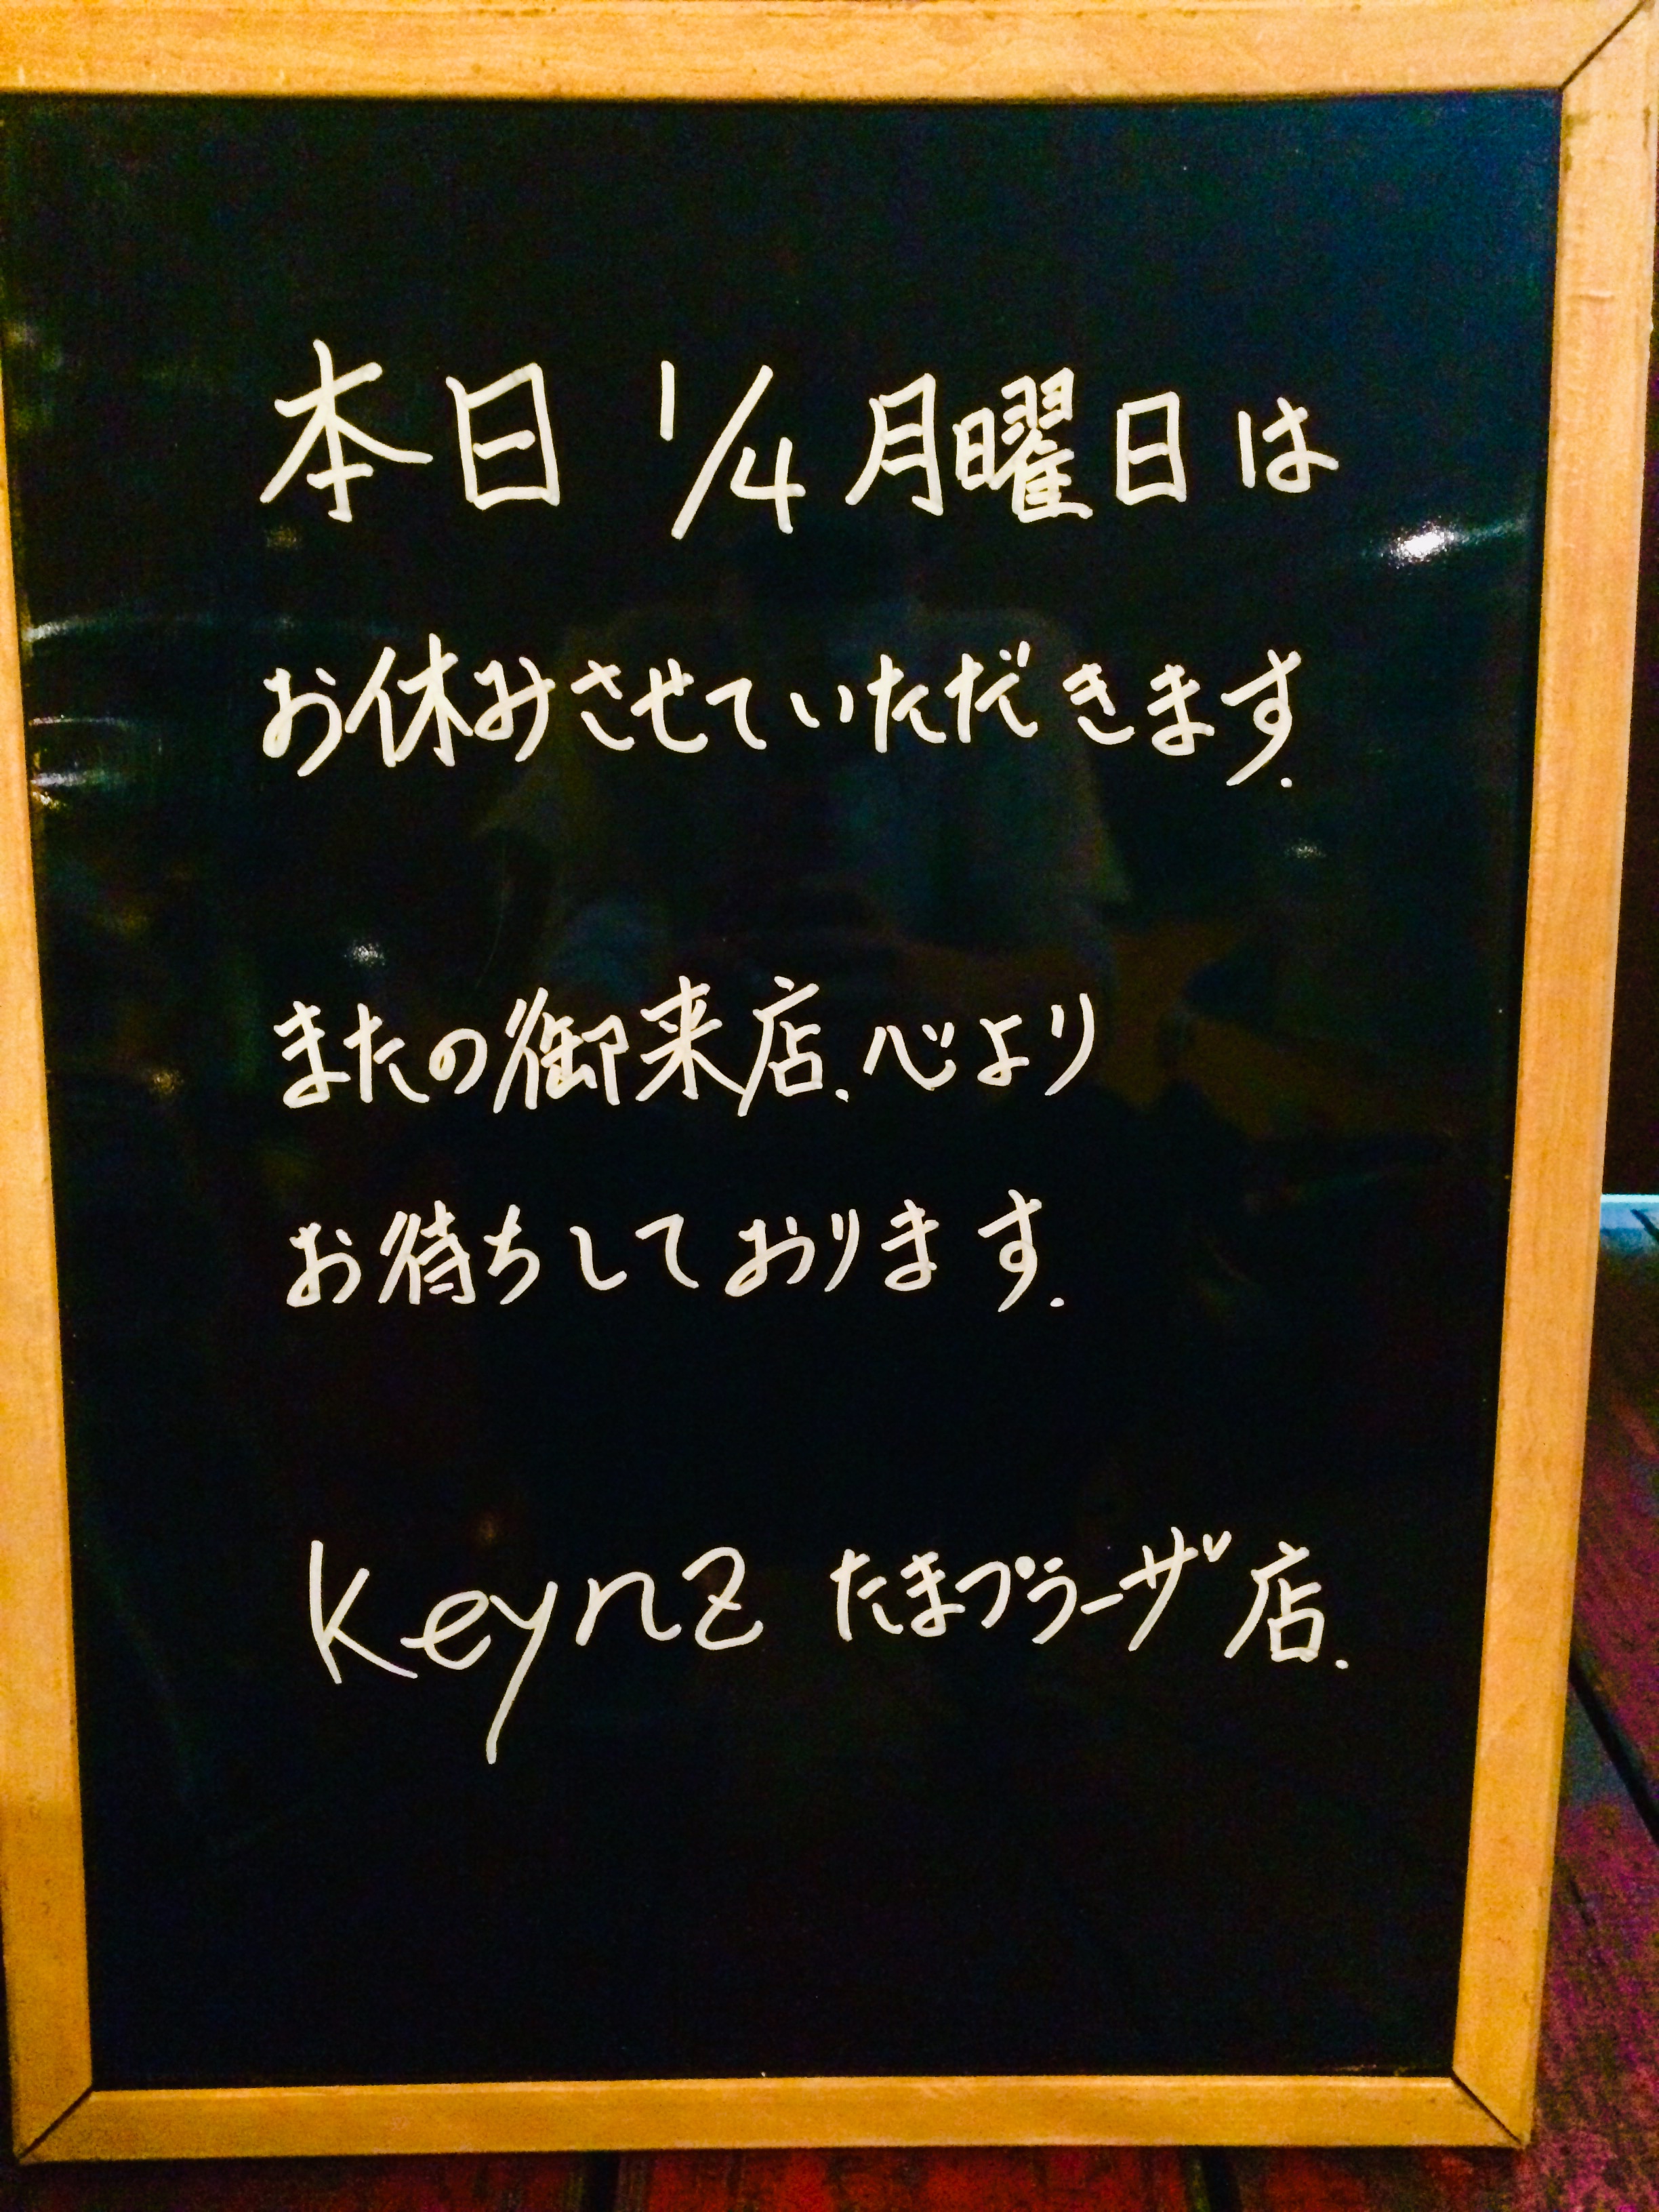 本日 1/4 月曜日は
お休みさせていただきます.
またの御来店.心より
お待ちしております.
keynz たまプラーザ店.